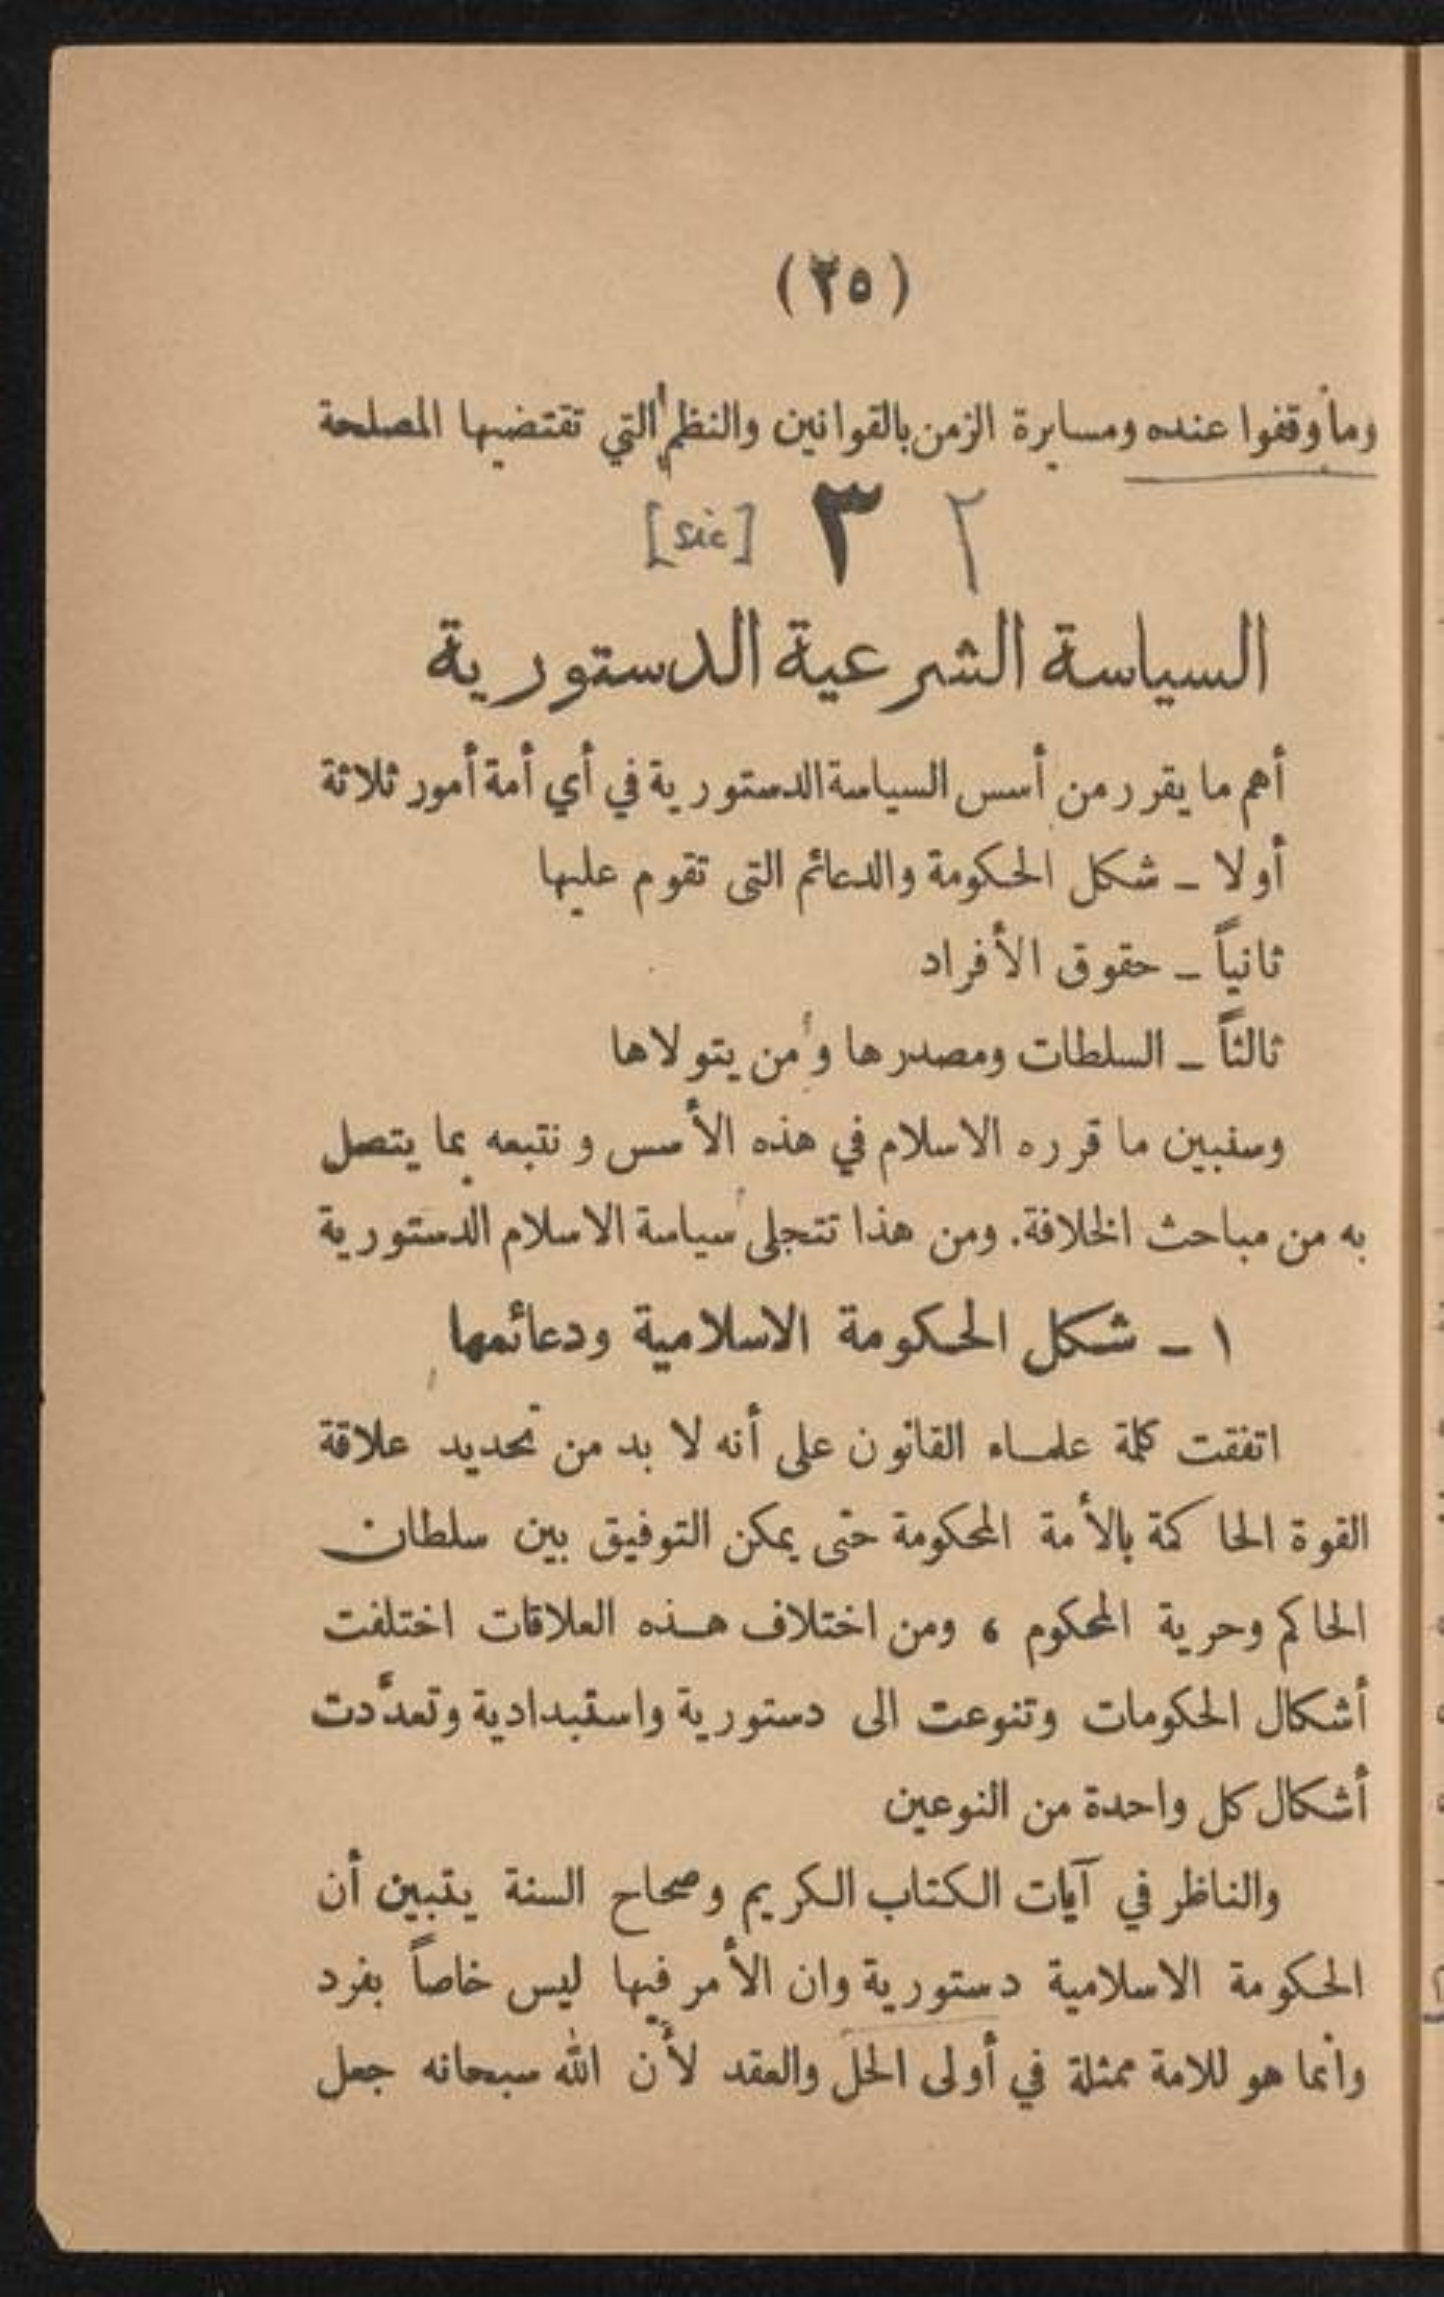 (٢٥)
وما وقفوا عنده ومسايرة الزمن بالقوانين والنظم التي تقتضيها المصلحة
٢ ٣ [sic]
السياسة الشرعية الدستورية
أهم ما يقرر من أسس السياسة الدستورية في أي أمة أمور ثلاثة
أولا ــ شكل الحكومة والدعائم التى تقوم عليها
ثانياً ــ حقوق الأفراد
ثالثاً ــ السلطات ومصدرها ومن يتولاها
وسنبين ما قرره الاسلام في هذه الأسس ونتبعه بما يتصل
به من مباحث الخلافة. ومن هذا تتجلى سياسة الاسلام الدستورية
١ ــ شكل الحكومة الاسلامية ودعائمها
اتفقت كلمة علماء القانون على أنه لا بد من تحديد علاقة
القوة الحاكمة بالأمة المحكومة حتى يمكن التوفيق بين سلطان
الحاكم وحرية المحكوم ، ومن اختلاف هذه العلاقات اختلفت
أشكال الحكومات وتنوعت الى دستورية واستبدادية وتعدَّدت
أشكال كل واحدة من النوعين
والناظر في آيات الكتاب الكريم وصحاح السنة يتبين أن
الحكومة الاسلامية دستورية وان الأمر فيها ليس خاصاً بفرد
وانما هو للامة ممثلة في أولى الحل والعقد لأن الله سبحانه جعل